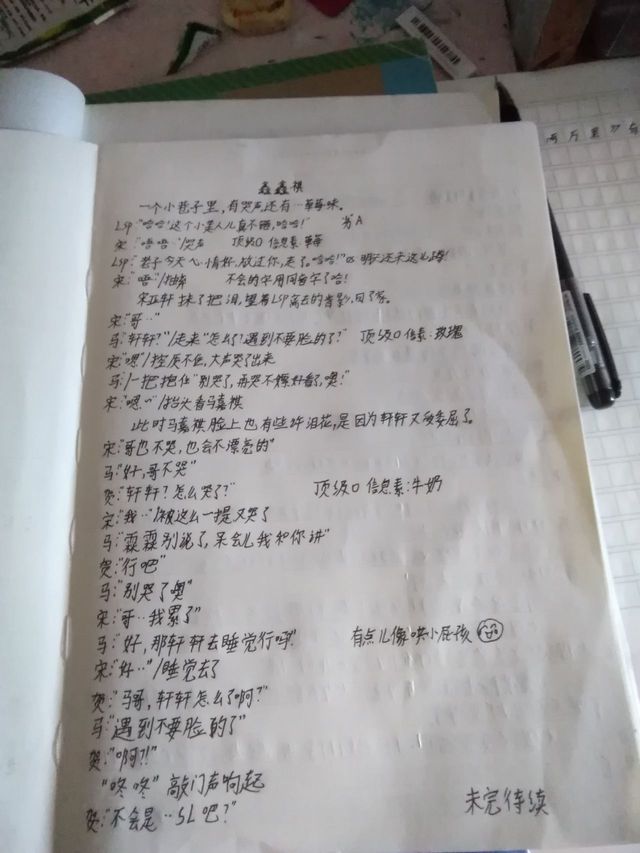 鑫鑫祺
一个小巷子里，有哭声，还有…草莓味。
LSP"哈哈！这个小美人儿真不错，哈哈！" 劣A
宋："唔唔…"/哭声 顶级O 信息素：草莓
LSP：老子今天心情好，放过你，走了。哈哈！"OS 明天还来这儿蹲！
宋："唔"/抽搐 不会的字用同音字了哈！
宋亚轩抹了把泪，望着LSP离去的背影，回了家。
宋："哥…"
马："轩轩？"/走来"怎么了？遇到不要脸的了？" 顶级O 信素·玫瑰
宋："嗯"/控质不住，大声哭了出来
马：/一把抱住"别哭了，再哭不漂好看了，噢！"
宋："嗯~"/抬头看马嘉祺
此时马嘉祺脸上也有些许泪花，是因为轩轩又受委屈了。
宋："哥也不哭，也会不漂亮的"
马："好，哥不哭"
贺："轩轩？怎么哭了？" 顶级O 信息素：牛奶
宋："我…"/被这么一提又哭了
马："霖霖别说了，呆会儿我和你讲"
贺："行吧"
马："别哭了奥"
宋："哥…我累了"
马："好，那轩轩去睡觉行吗？" 有点儿像哄小屁孩
宋："好…"/睡觉去了
贺："马哥，轩轩怎么了啊？"
马："遇到不要脸的了"
贺："啊？！"
"咚咚"敲门声响起
贺："不会是…SL吧？" 未完待续